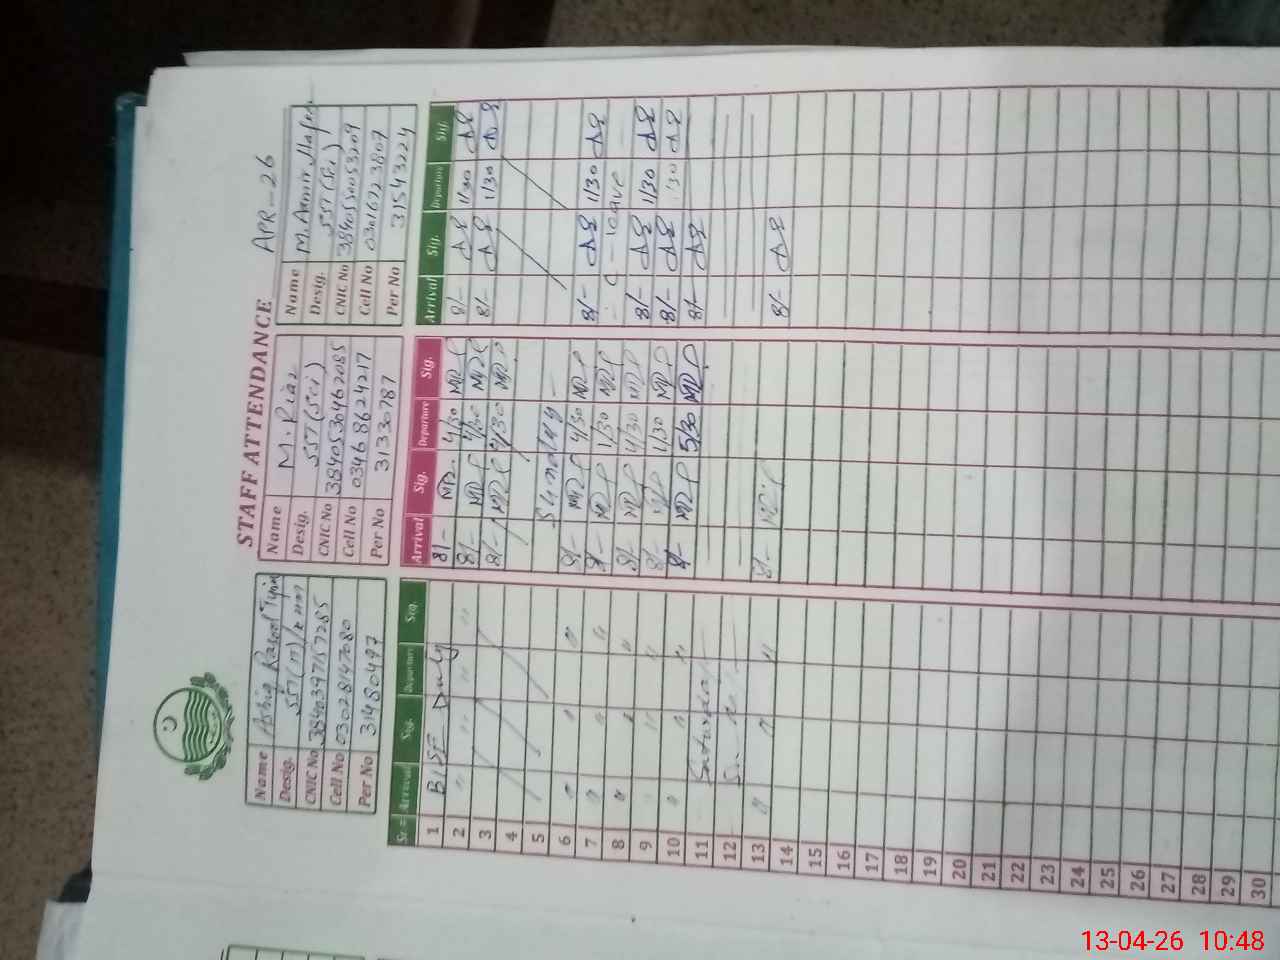 STAFF ATTENDANCE APR-26
Name Ashiq Rasool
Desig. SST (M)
CNIC No 3840397157285
Cell No 03028147080
Per No 31480497
Name M. Riaz
Desig. SST (Sci)
CNIC No 3840530462085
Cell No 03468624217
Per No 31330787
Name M. Aamir
Desig. SST (Sci)
CNIC No 3840550053209
Cell No 03016723807
Per No 31543224
Sr # Arrival Sig. Departure Sig. Arrival Sig. Departure Sig. Arrival Sig. Departure Sig.
1 BISE Duty 8/- 4/30
2 " " " " 8/- 4/30 8/- 1/30
3 8/- 4/30 8/- 1/30
4
5 Sunday
6 " " " 8/- 4/30
7 " " " 8/- 1/30 8/- 1/30
8 " " " 8/- 4/30 C-leave
9 " " 8/- 1/30 8/- 1/30
10 " " " 8/- 5/30 8/- 1/30
11 Saturday 8/-
12
13 " " " 8/-
14 8/-
15
16
17
18
19
20
21
22
23
24
25
26
27
28
29
30
13-04-26 10:48